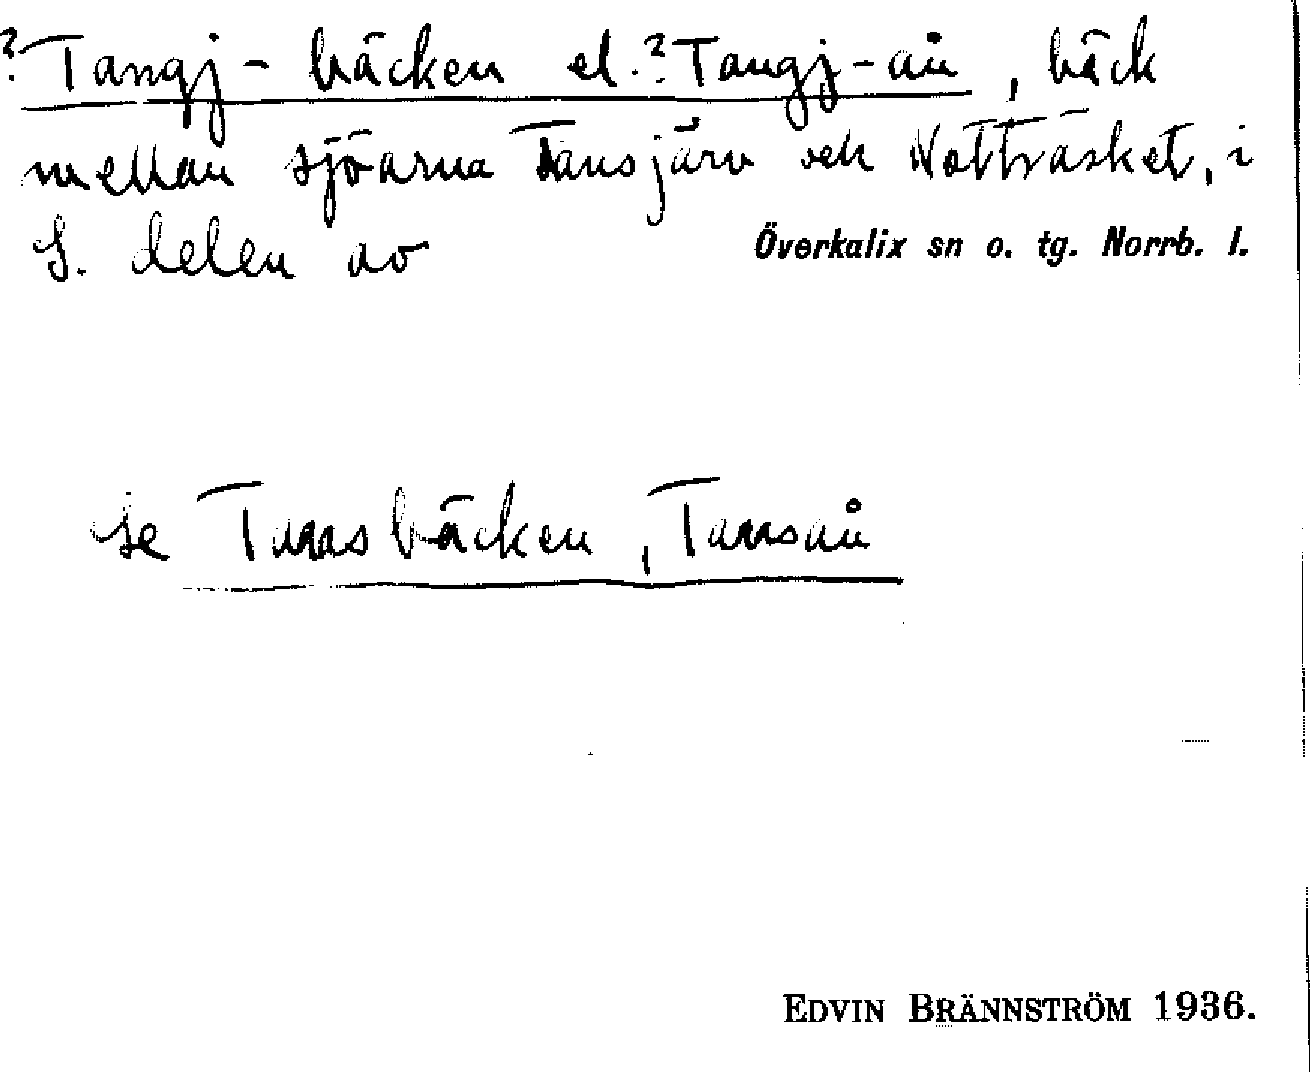 ?Tangj-bäcken el. ?Tangj-ån, bäck
mellan sjöarna Tansjärv och Notträsket, i
S. delen av Överkalix sn o. tg. Norrb. l.
se Tansbäcken, Tansån
EDVIN BRÄNNSTRÖM 1936.